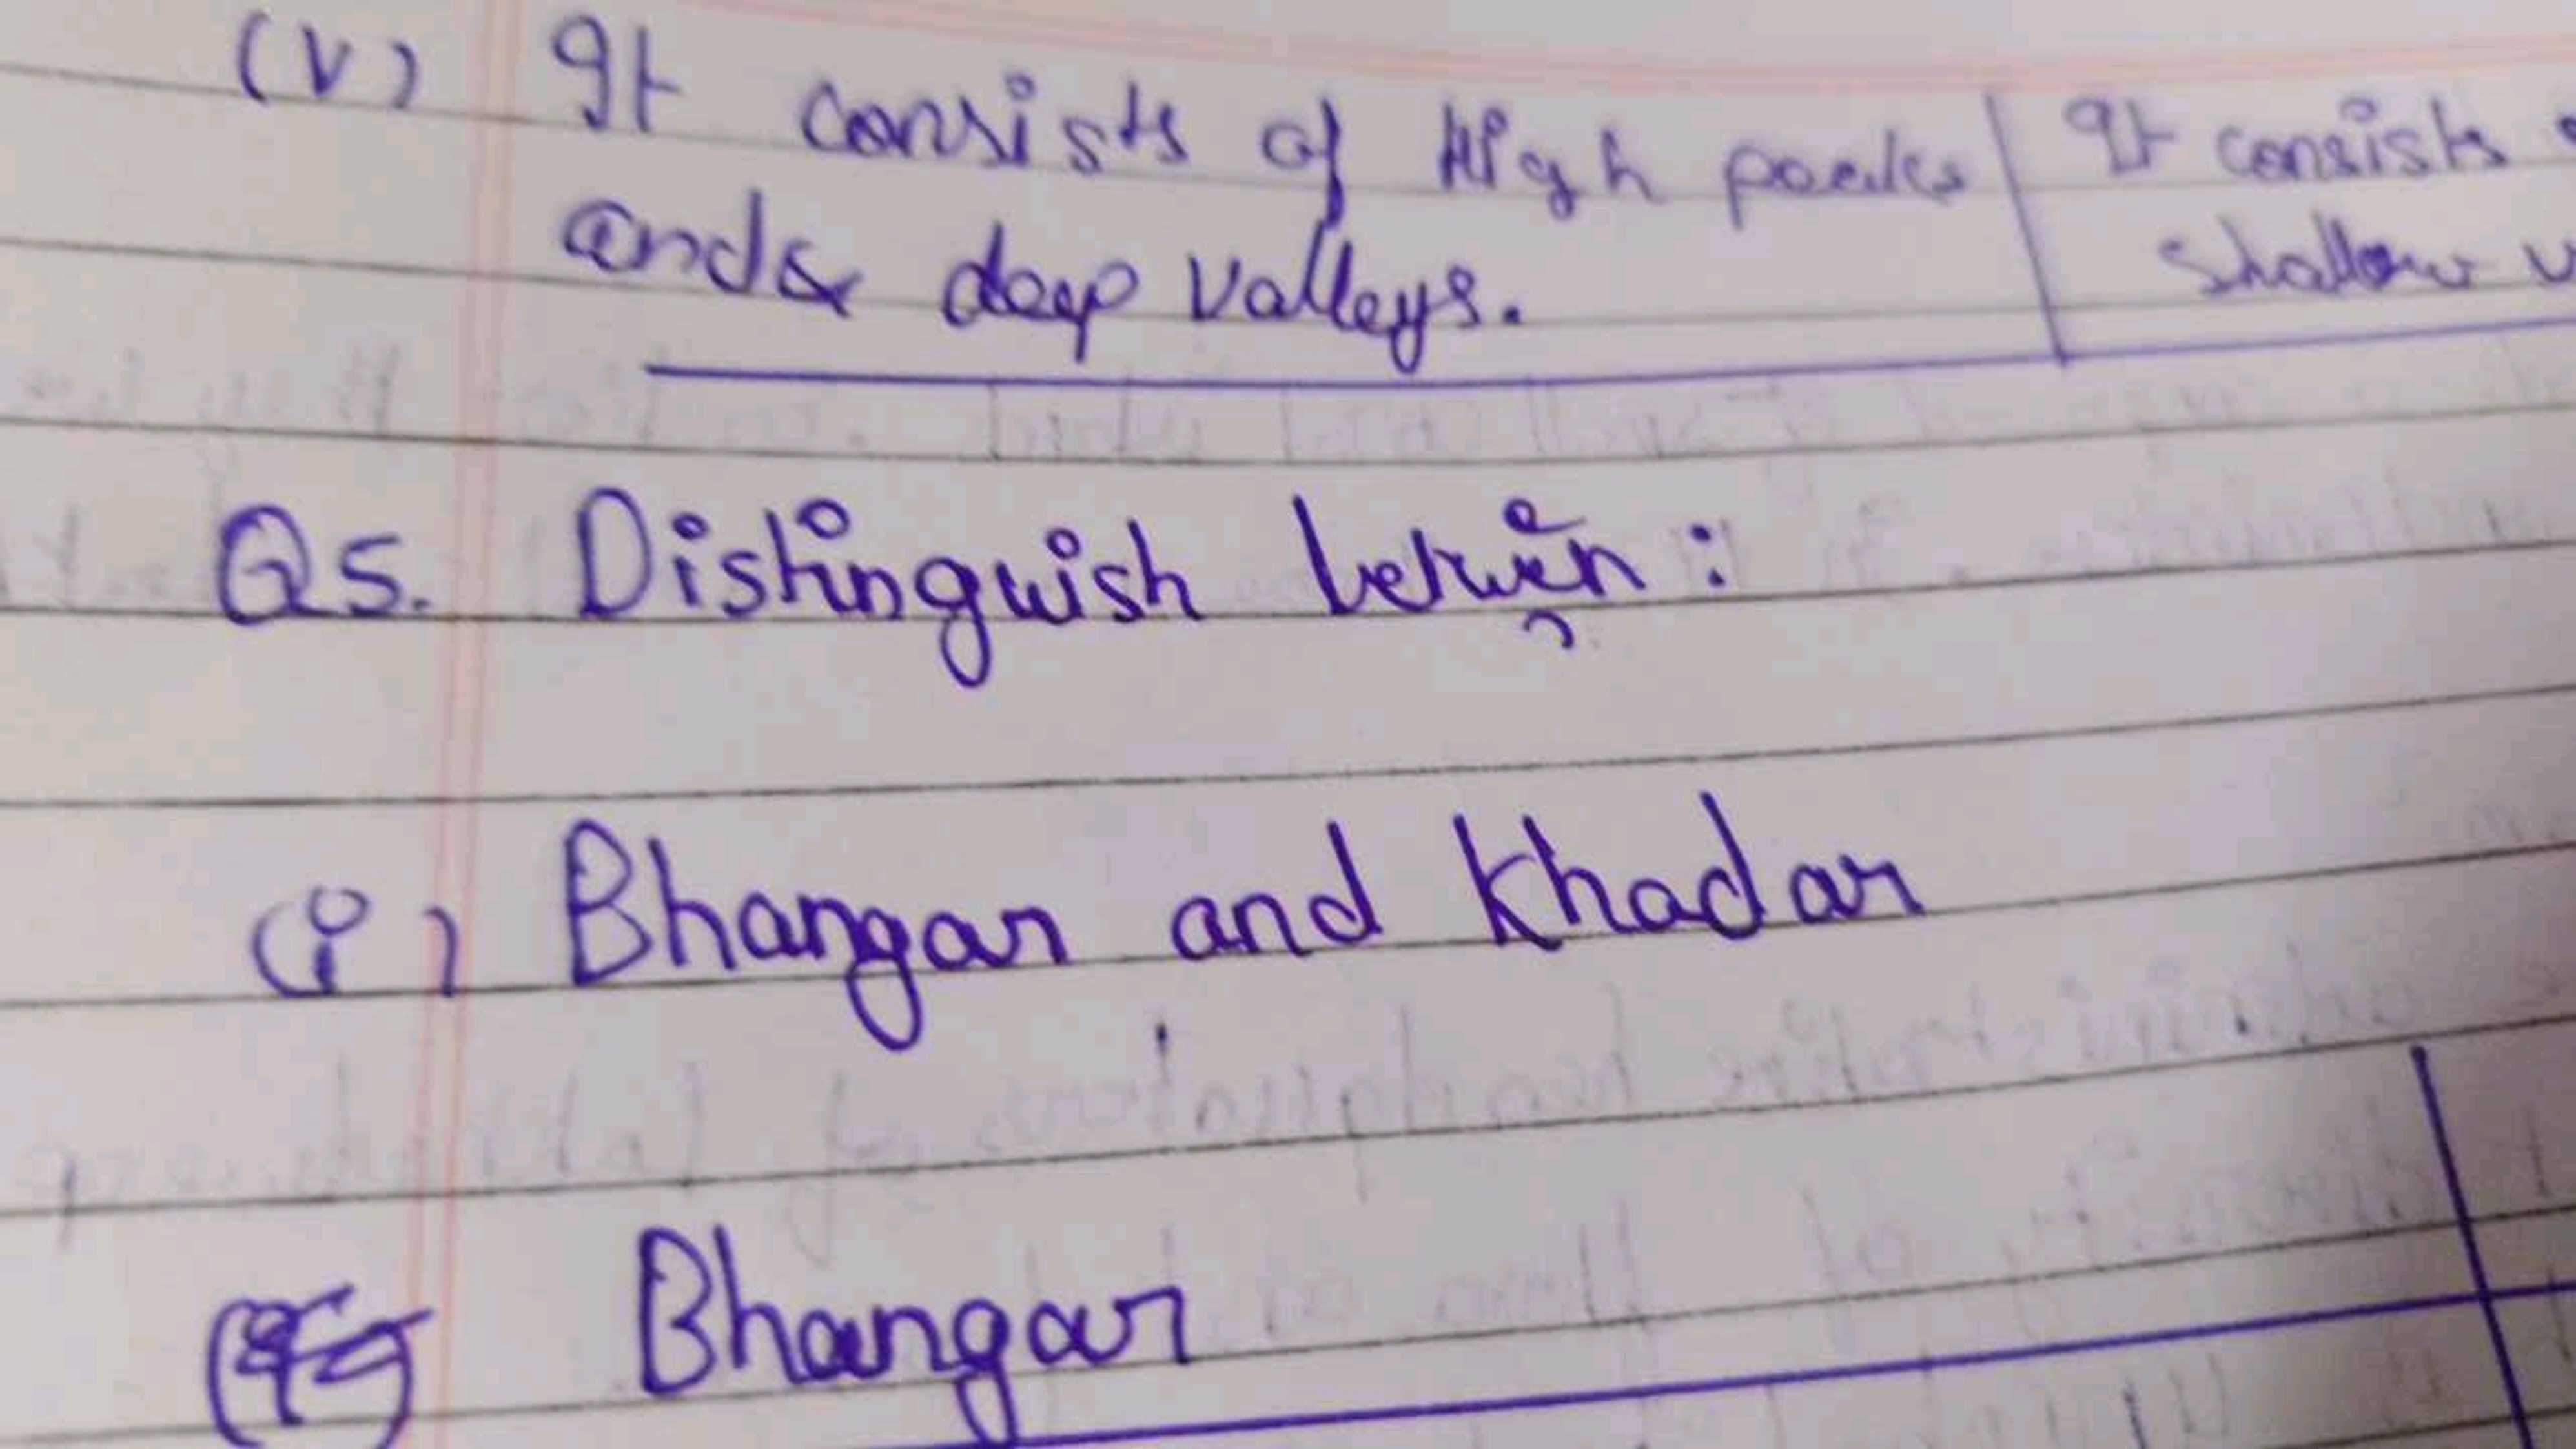 (V) It consists of High peaks
and& deep valleys.
It consists
shallow
Q5. Distinguish between :
(i) Bhangar and Khadar
Bhangar